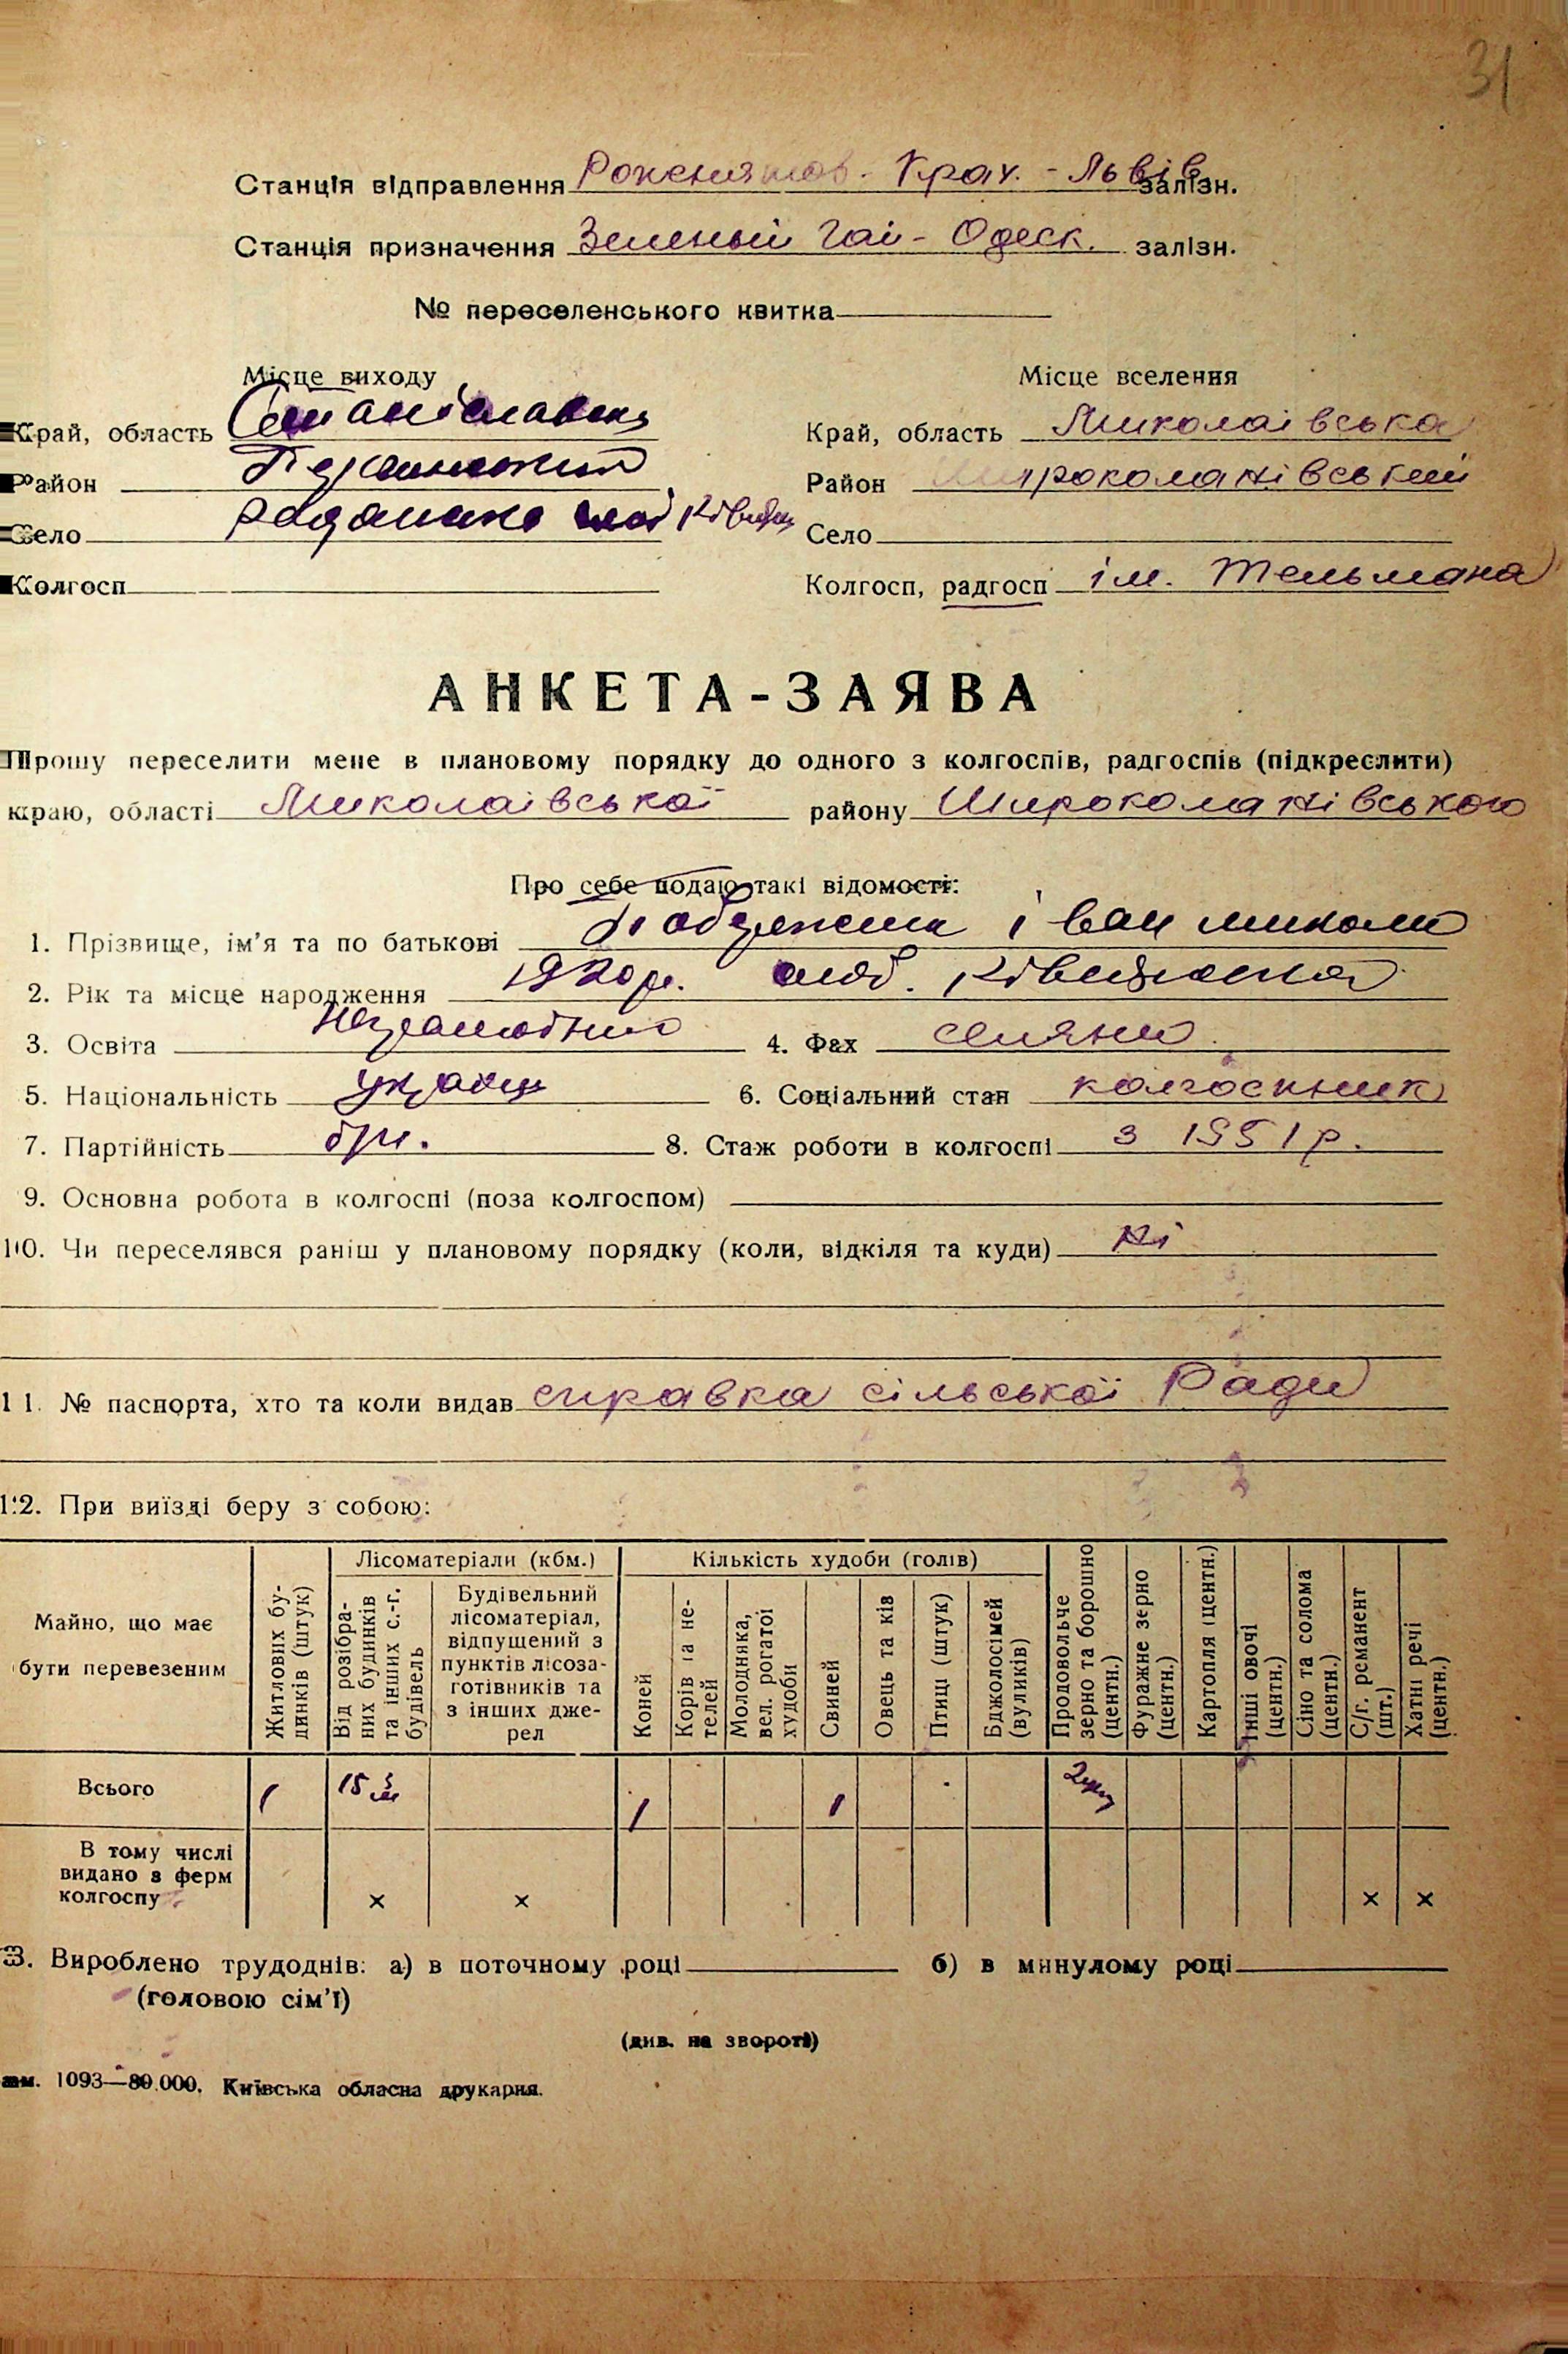 31
Станція відправлення Рожнятов - Крах. - Львів залізн.
Станція призначення Зеленый Гай - Одеск. залізн.
№ переселенського квитка
Місце виходу
Місце вселення
Край, область Станіславська
Край, область Миколаївська
Район
Район Широколанівський
Село
Село
Колгосп
Колгосп, радгосп ім. Тельмана
АНКЕТА-ЗАЯВА
Прошу переселити мене в плановому порядку до одного з колгоспів, радгоспів (підкреслити)
краю, області Миколаївської району Широколанівського
Про себе подаю такі відомості:
1. Прізвище, ім'я та по батькові Іван Микол
2. Рік та місце народження 1920 р.
3. Освіта неграмотний 4. Фах
5. Національність українц 6. Соціальний стан колгоспник
7. Партійність б/п. 8. Стаж роботи в колгоспі з 1951 р.
9. Основна робота в колгоспі (поза колгоспом)
10. Чи переселявся раніш у плановому порядку (коли, відкіля та куди) Ні
11. № паспорта, хто та коли видав справка сільської Ради
12. При виїзді беру з собою:
Майно, що має бути перевезеним
Житлових будинків (штук)
Лісоматеріали (кбм.)
Від розібраних будинків та інших с.-г. будівель
Будівельний лісоматеріал, відпущений з пунктів лісозаготівників та з інших джерел
Кількість худоби (голів)
Коней
Корів та нетелей
Молодняка, вел. рогатої худоби
Свиней
Овець та ків
Птиці (штук)
Бджолосімей (вуликів)
Продовольче зерно та борошно (центн.)
Фуражне зерно (центн.)
Картопля (центн.)
Інші овочі (центн.)
Сіно та солома (центн.)
С/г. реманент (шт.)
Хатні речі (центн.)
Всього 1 15 м³ 1 1 2
В тому числі видано з ферм колгоспу × × × ×
13. Вироблено трудоднів: а) в поточному році б) в минулому році
(головою сім'ї)
(див. на звороті)
зам. 1093—80.000. Київська обласна друкарня.